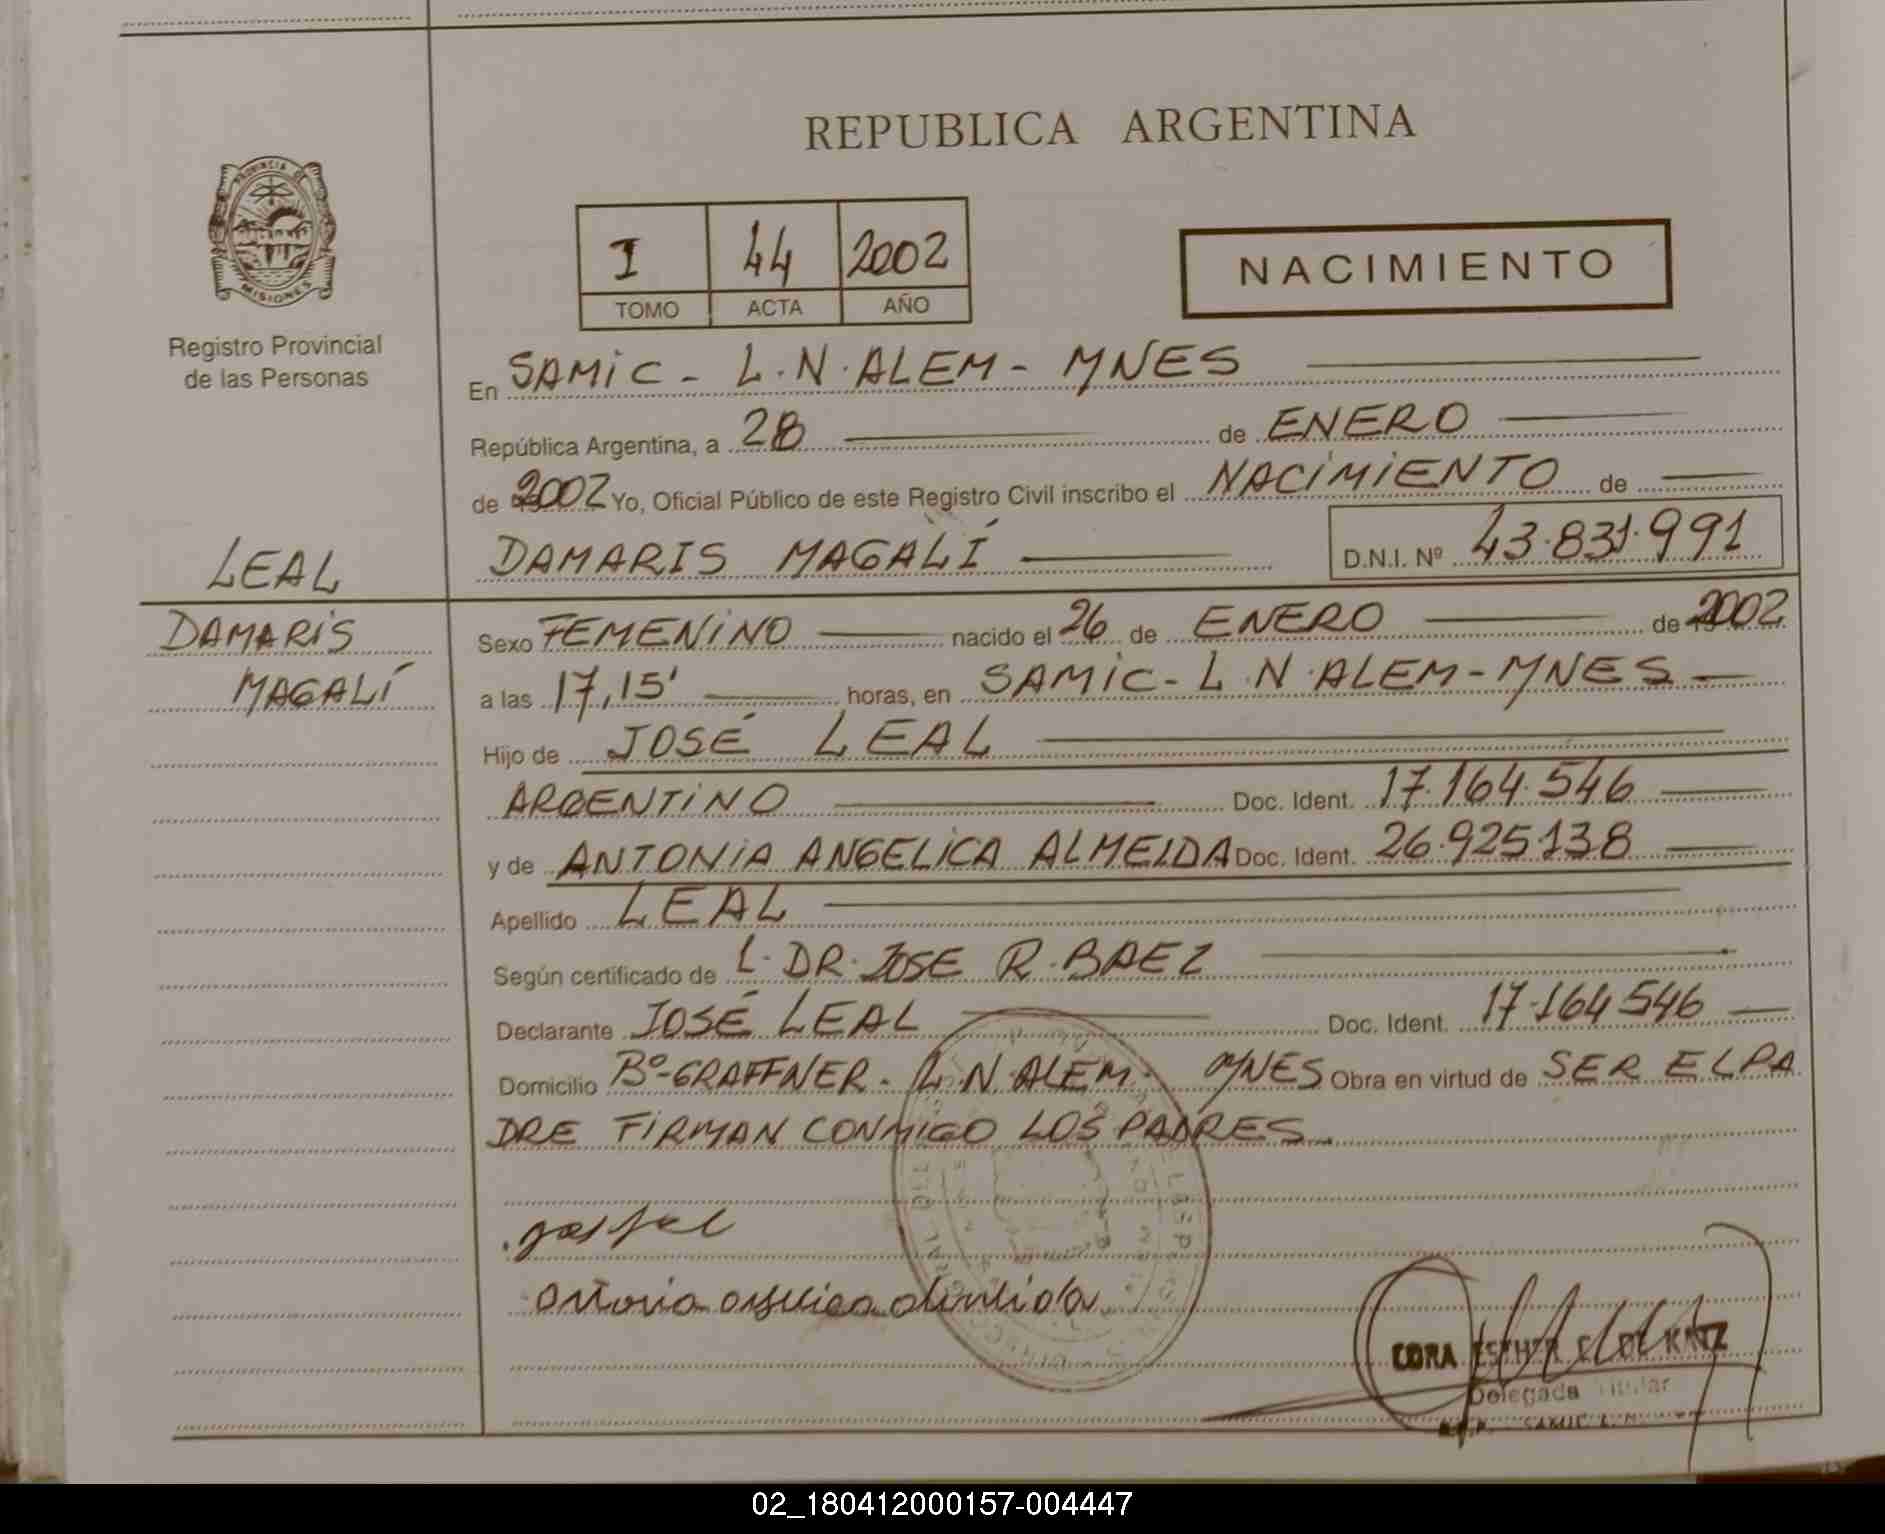 REPUBLICA ARGENTINA
PROVINCIA DE
MISIONES
Registro Provincial
de las Personas
I 44 2002
TOMO ACTA AÑO
NACIMIENTO
En SAMIC - L.N.ALEM - MNES
República Argentina, a 28 de ENERO
de 2002 Yo, Oficial Público de este Registro Civil inscribo el NACIMIENTO de
DAMARIS MAGALÍ D.N.I. Nº 43.831.991
LEAL
DAMARIS
MAGALÍ
Sexo FEMENINO nacido el 26 de ENERO de 2002
a las 17,15' horas, en SAMIC - L.N.ALEM - MNES
Hijo de JOSÉ LEAL
ARGENTINO Doc. Ident. 17.164.546
y de ANTONIA ANGELICA ALMEIDA Doc. Ident. 26.925.138
Apellido LEAL
Según certificado de L. DR. JOSE R. BAEZ
Declarante JOSÉ LEAL Doc. Ident. 17.164546
Domicilio Bº-GRAFFNER - L.N.ALEM - MNES Obra en virtud de SER EL PA
DRE FIRMAN CONMIGO LOS PADRES
CORA ESTHER DE KATZ
Delegada Titular
02_180412000157-004447